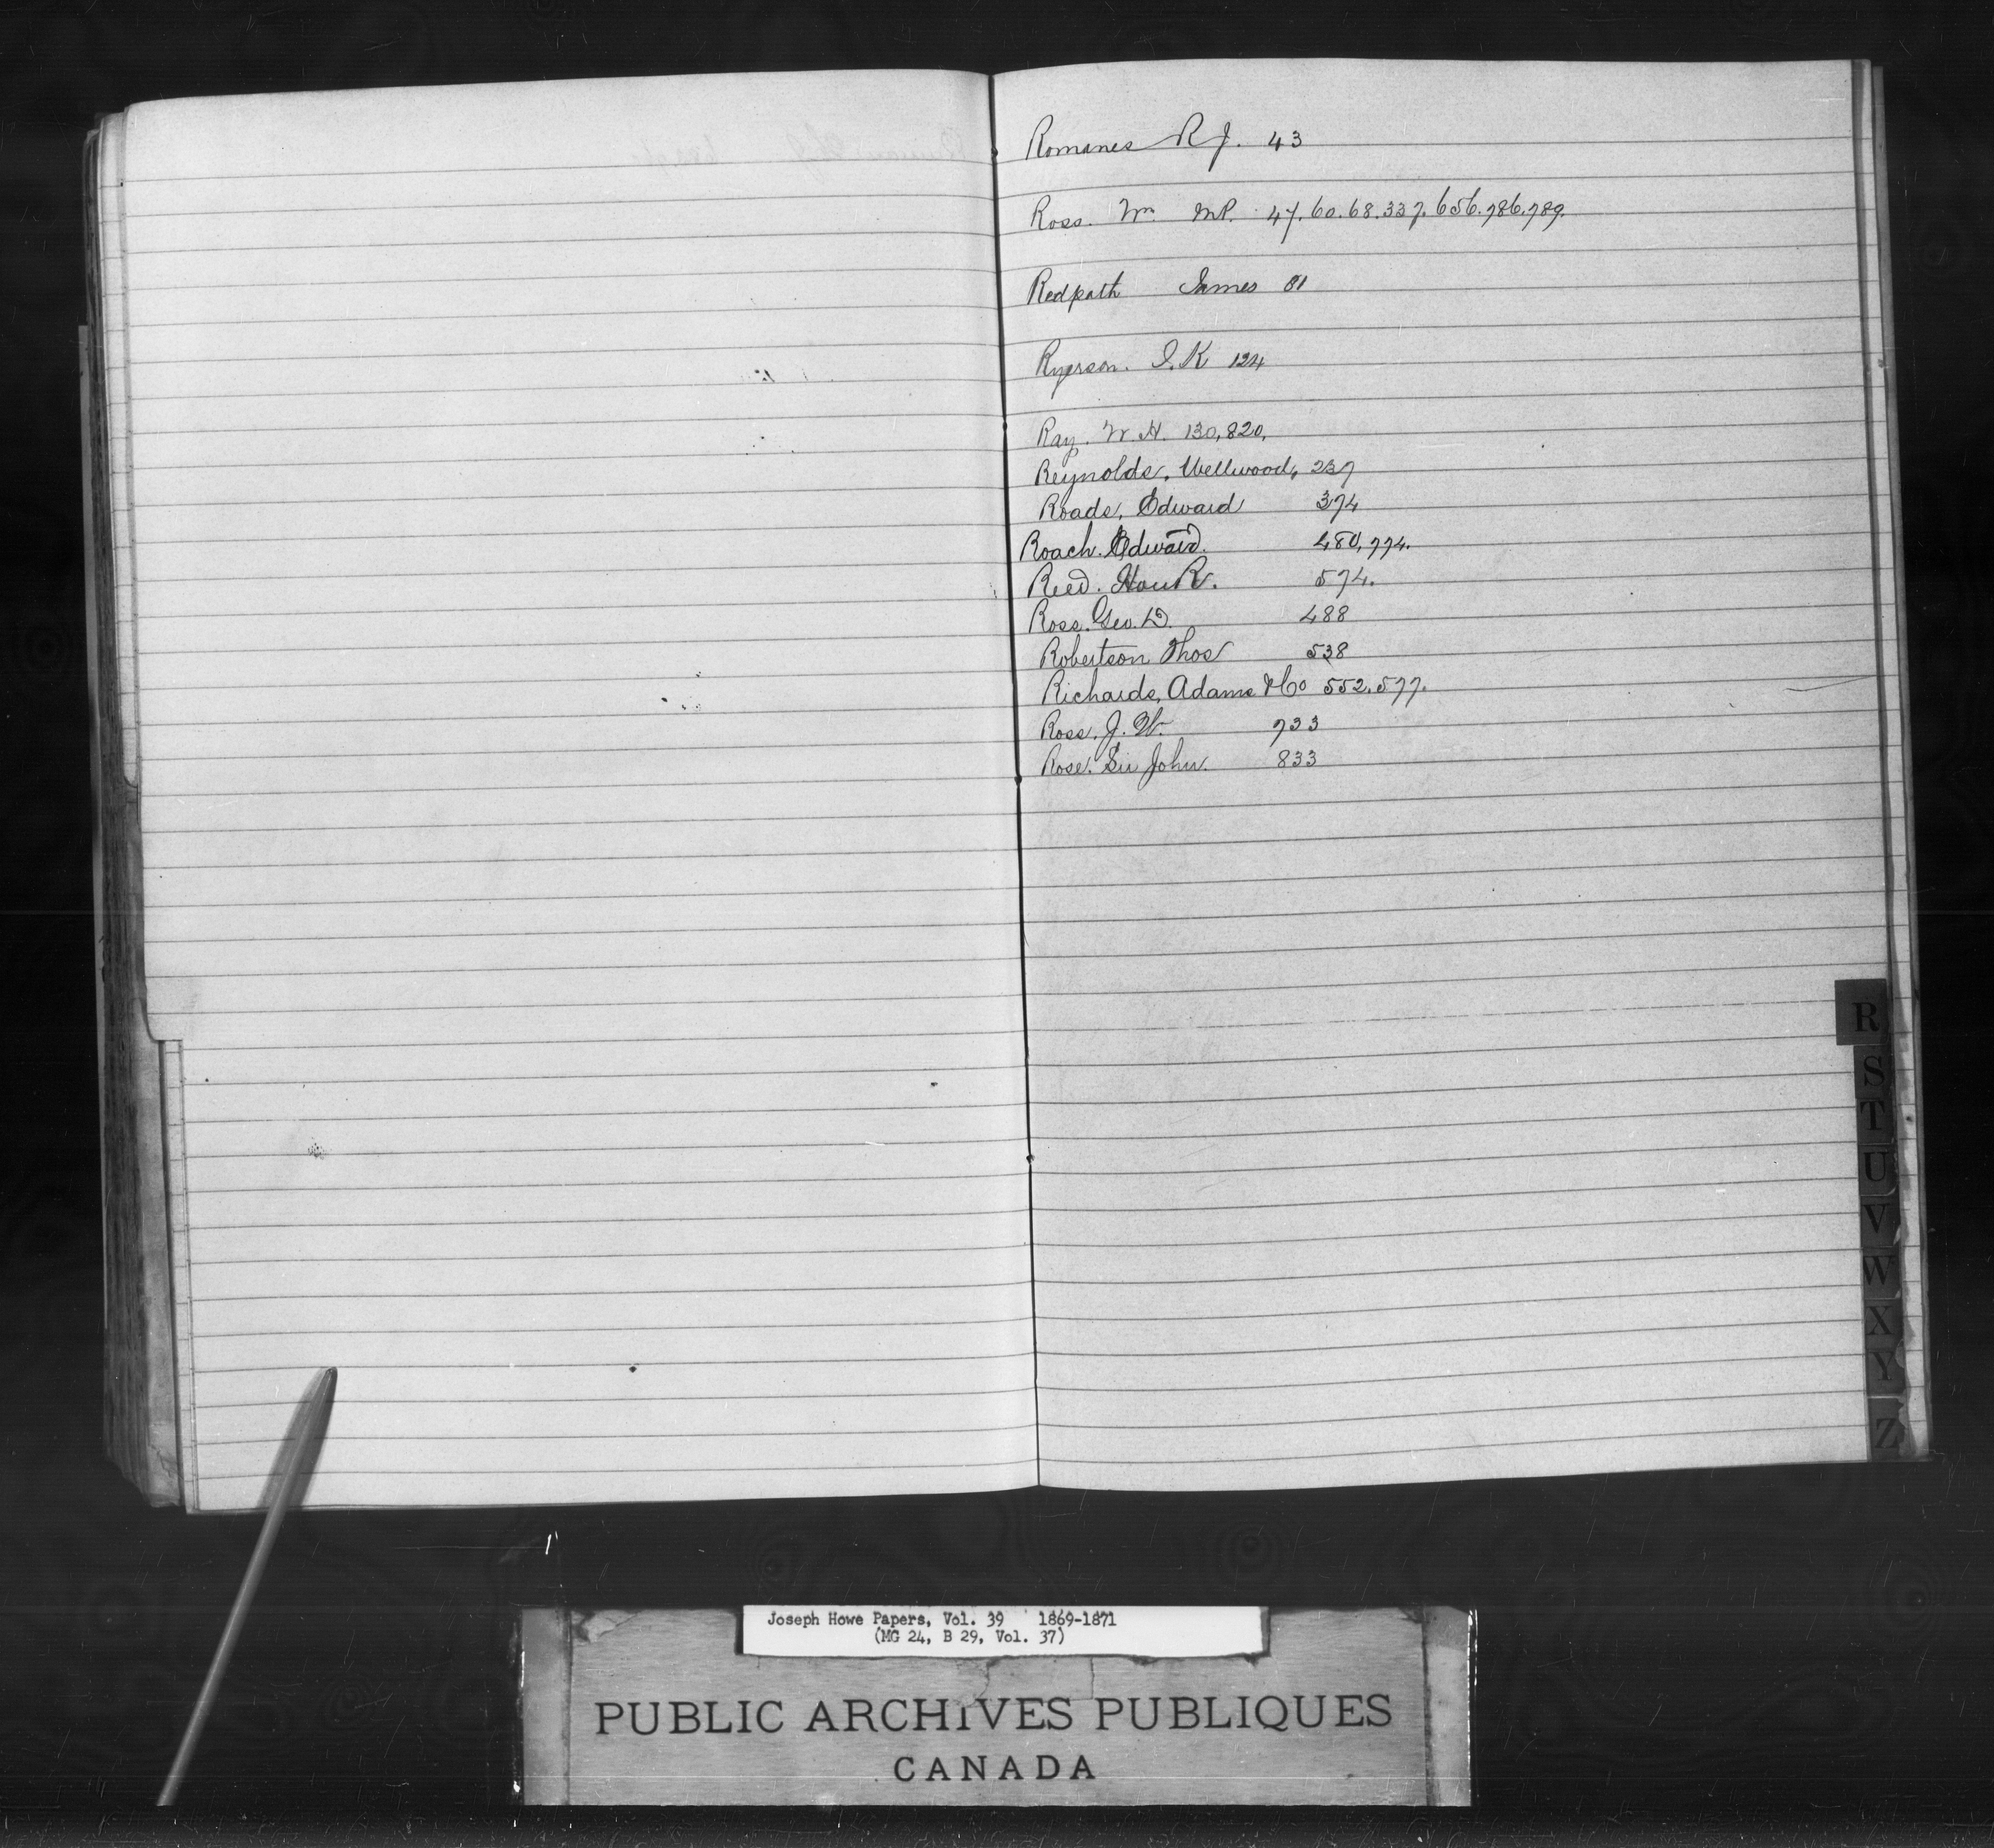 Romanes R J. 43
Ross. Wm MP. 47. 60. 68. 337. 656. 786. 789.
Redpath James 81
Ryerson. J. K 124
Ray. W. H. 130, 820,
Reynolds, Wellwood, 237
Roade, Edward 374
Roach. Edward. 480, 774.
Reed. Hon R. 574.
Ross. Geo. D. 488
Robertson Thos 538
Richards, Adams & Co 552. 577.
Ross. J. W. 733
Rose. Sir John. 833
R
S
T
U
V
W
X
Y
Z
Joseph Howe Papers, Vol. 39 1869-1871
(MG 24, B 29, Vol. 37)
PUBLIC ARCHIVES PUBLIQUES
CANADA